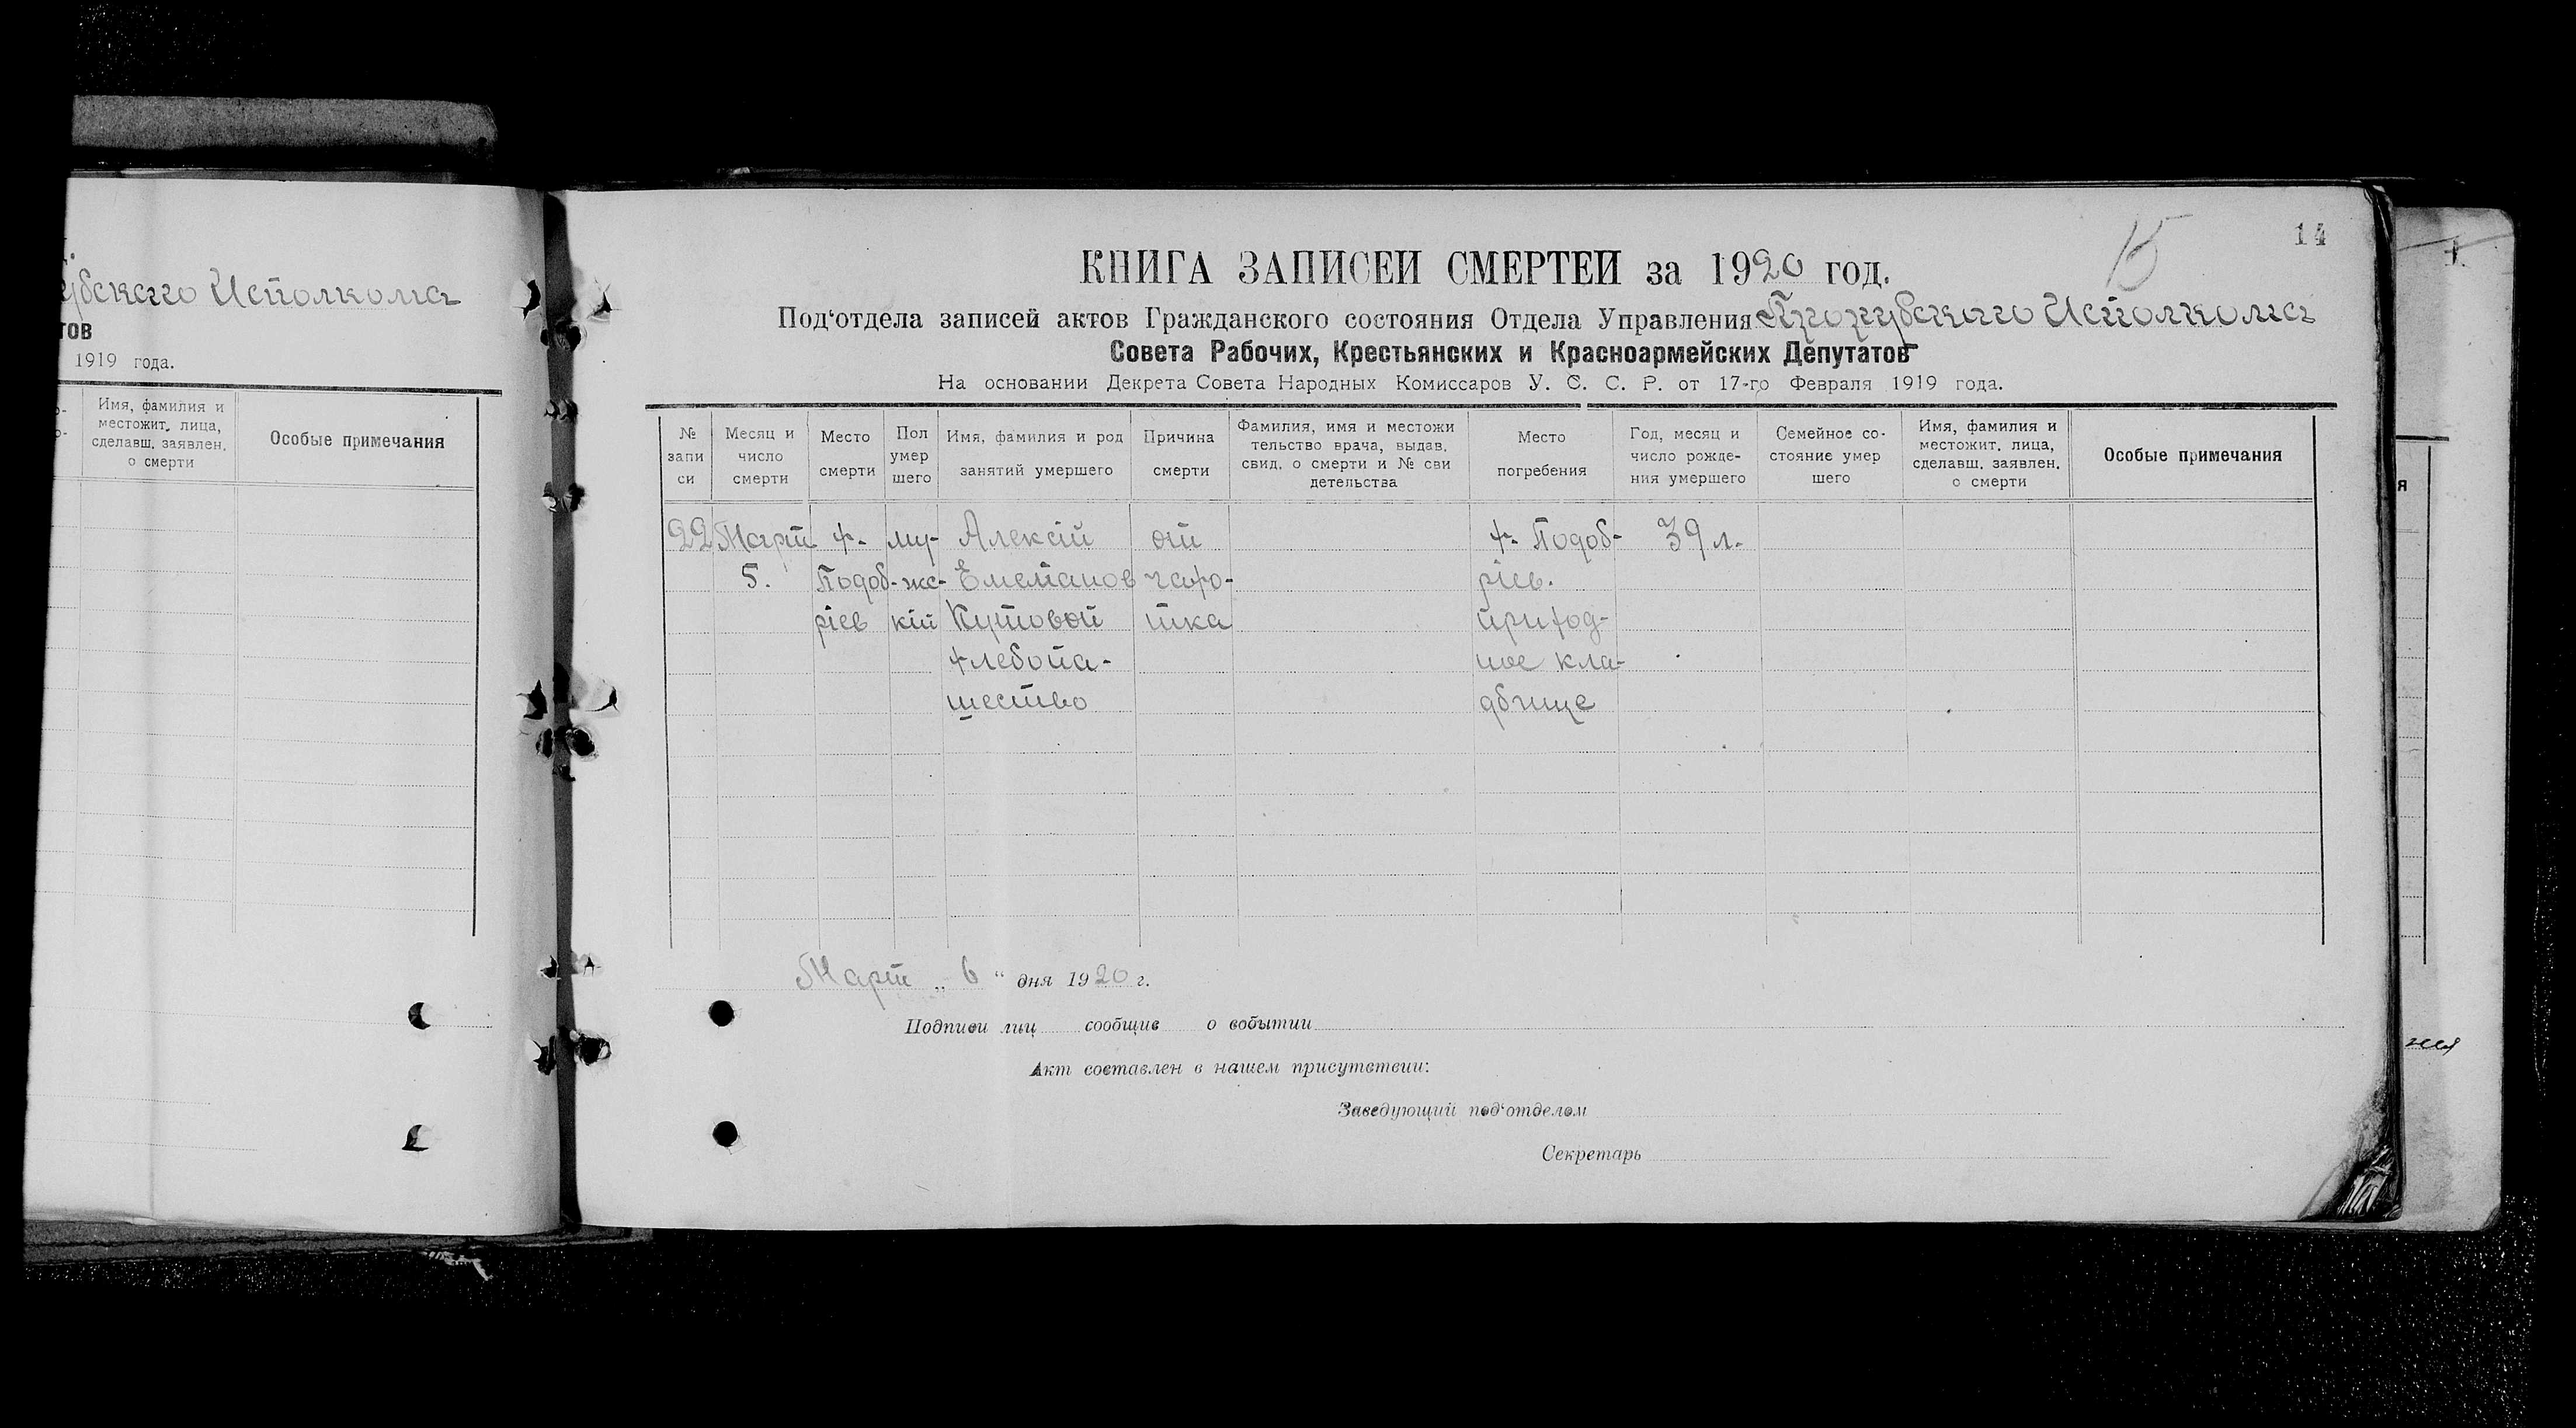 убскаго Исполкома
тов
1919 года.
Имя, фамилия и
местожит. лица,
сделавш. заявлен.
о смерти
Особые примечания
15
14
КНИГА ЗАПИСЕЙ СМЕРТЕЙ за 1920 год.
Под‘отдела записей актов Гражданского состояния Отдела Управления Исполкома
Совета Рабочих, Крестьянских и Красноармейских Депутатов
На основании Декрета Совета Народных Комиссаров У. С. С. Р. от 17-го Февраля 1919 года.
№
запи
си
Месяц и
число
смерти
Место
смерти
Пол
умер
шего
Имя, фамилия и род
занятий умершего
Причина
смерти
Фамилия, имя и местожи
тельство врача, выдав.
свид. о смерти и № сви
детельства
Место
погребения
Год, месяц и
число рожде-
ния умершего
Семейное со-
стояние умер
шего
Имя, фамилия и
местожит. лица,
сделавш. заявлен.
о смерти
Особые примечания
22 Март х. му- Алексій от х. Подоб- 39 л.
5. Подоб- жс- Емелианов чахо- ріев.
ріев кій Кутовой тка приход-
хлебопа- ное кла-
шество дбище
Март „ 6 “ дня 1920 г.
Подписи лиц сообщив о событии
Акт составлен в нашем присутствии:
Заведующий под‘отделом
Секретарь
я